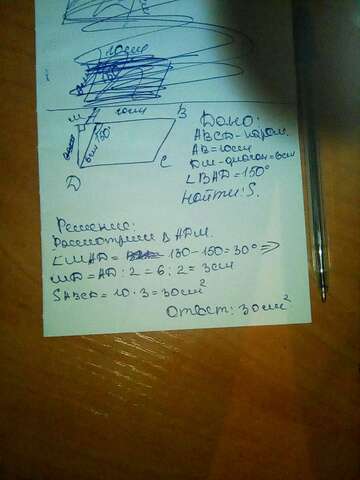 10см
M
10см
B
6см
150°
D
C
Дано:
ABCD - парал.
AB = 10см
DM - диагон = 6см
∠BAD = 150°
Найти: S.
Решение:
Рассмотрим Δ ADM.
∠MAD = 180 - 150 = 30° =>
MD = AD : 2 = 6 : 2 = 3см
SABCD = 10 · 3 = 30см²
Ответ: 30см²